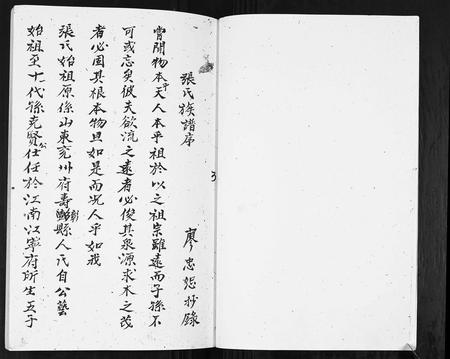 張氏族譜序 廖忠恕抄錄
嘗聞物本乎天人本乎祖於以之祖宗雖遠而子孫不
可或忘矣彼夫欲流之遠者必俊其泉源求木之茂
者必固其根本物且如是而况人乎如我
張氏始祖原係山東兖州府壽縣人氏自公藝
始祖至十代孫克賢公仕任於江南江寧府所生五子